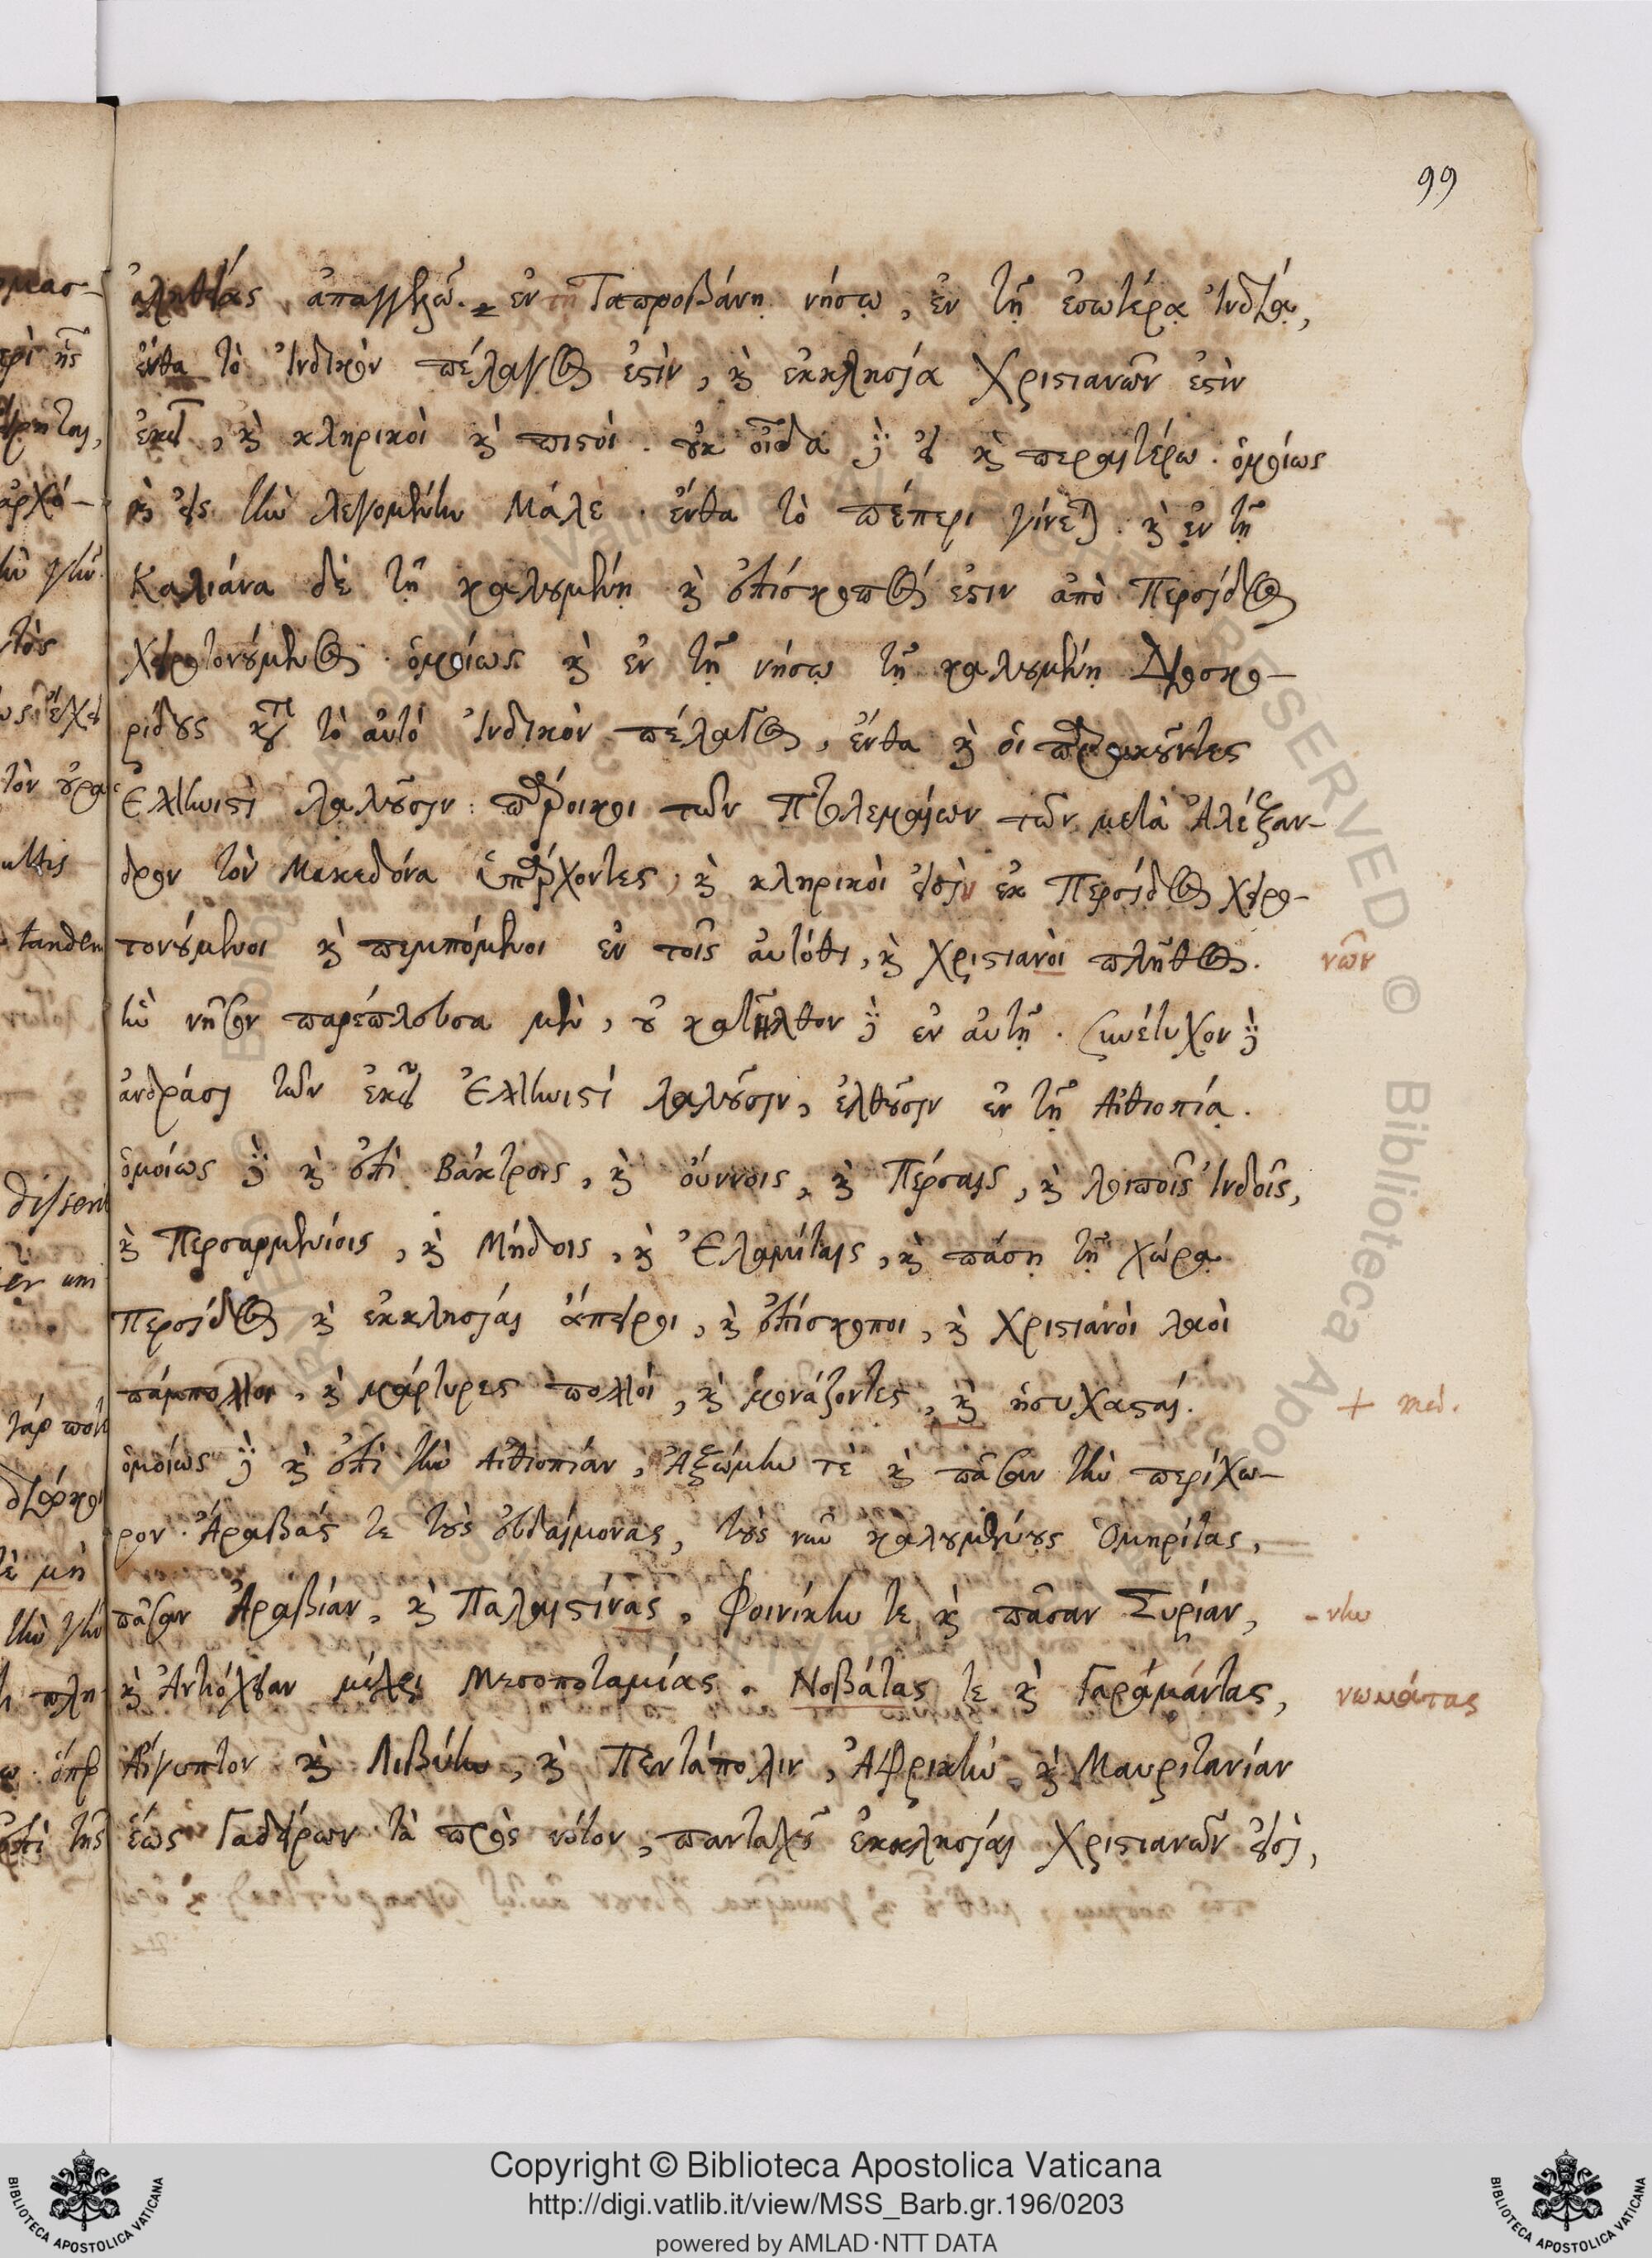 99
ἀληθείας ἀπαγγελῶ. ἐν τῇ Ταπροβάνῃ νήσῳ, ἐν τῇ ἐσωτέρᾳ Ἰνδίᾳ,
ἔνθα τὸ Ἰνδικὸν πέλαγος ἐστὶν, καὶ ἐκκλησία Χριστιανῶν ἐστὶν
ἐκεῖ, καὶ κληρικοὶ καὶ πιστοὶ. οὐκ οἶδα δὲ εἰ καὶ περαιτέρω. ὁμοίως
καὶ εἰς τὴν λεγομένην Μάλε. ἔνθα τὸ πέπερι γίνεται. καὶ ἐν τῇ
Καλιάνα δὲ τῇ καλουμένῃ καὶ ἐπίσκοπός ἐστιν ἀπὸ Περσίδος
χειροτονούμενος. ὁμοίως καὶ ἐν τῇ νήσῳ τῇ καλουμένῃ Διοσκο-
ρίδους κατὰ τὸ αὐτὸ Ἰνδικὸν πέλαγος, ἔνθα καὶ οἱ παροικοῦντες
Ἑλληνιστὶ λαλοῦσιν. πάροικοι τῶν Πτολεμαίων τῶν μετὰ Ἀλέξαν-
δρον τὸν Μακεδόνα ὑπάρχοντες, καὶ κληρικοὶ εἰσὶν ἐκ Περσίδος χειρο-
τονούμενοι καὶ πεμπόμενοι ἐν τοῖς αὐτόθι, καὶ Χριστιανοὶ πλῆθος.
νῶν
ἣν νῆσον παρέπλευσα μὲν, οὐ κατῆλθον δὲ ἐν αὐτῇ. συνέτυχον δὲ
ἀνδράσι τῶν ἐκεῖ Ἑλληνιστὶ λαλοῦσιν, ἐλθοῦσιν ἐν τῇ Αἰθιοπίᾳ.
ὁμοίως δὲ καὶ ἐπὶ Βάκτροις, καὶ Οὔννοις, καὶ Πέρσαις, καὶ λοιποῖς Ἰνδοῖς,
καὶ Περσαρμενίοις, καὶ Μήδοις, καὶ Ἐλαμίταις, καὶ πάσῃ τῇ χώρᾳ
Περσίδος καὶ ἐκκλησίαι ἄπειροι, καὶ ἐπίσκοποι, καὶ Χριστιανοὶ λαοὶ
πάμπολλοι, καὶ μάρτυρες πολλοί, καὶ μονάζοντες, καὶ ἡσυχασταί.
ὁμοίως δὲ καὶ ἐπὶ τὴν Αἰθιοπίαν, Ἀξώμην τὲ καὶ πᾶσαν τὴν περίχω-
ρον. Ἄραβάς τε τοὺς εὐδαίμονας, τοὺς νῦν καλουμένους Ὁμηρίτας,
πᾶσαν Ἀραβίαν, καὶ Παλαιστίνας, Φοινίκην τε καὶ πᾶσαν Συρίαν,
-νην
καὶ Ἀντιόχειαν μέχρι Μεσοποταμίας. Νοβάτας τε καὶ Γαράμάντας,
νωμάτας
Αἴγυπτον καὶ Λιβύην, καὶ Πεντάπολιν, Ἀφρικὴν καὶ Μαυριτανίαν
ἕως Γαδείρων τὰ πρὸς νότον, πανταχοῦ ἐκκλησίαι Χριστιανῶν εἰσὶ,
Copyright © Biblioteca Apostolica Vaticana
http://digi.vatlib.it/view/MSS_Barb.gr.196/0203
powered by AMLAD·NTT DATA
BIBLIOTECA APOSTOLICA VATICANA
BIBLIOTECA APOSTOLICA VATICANA